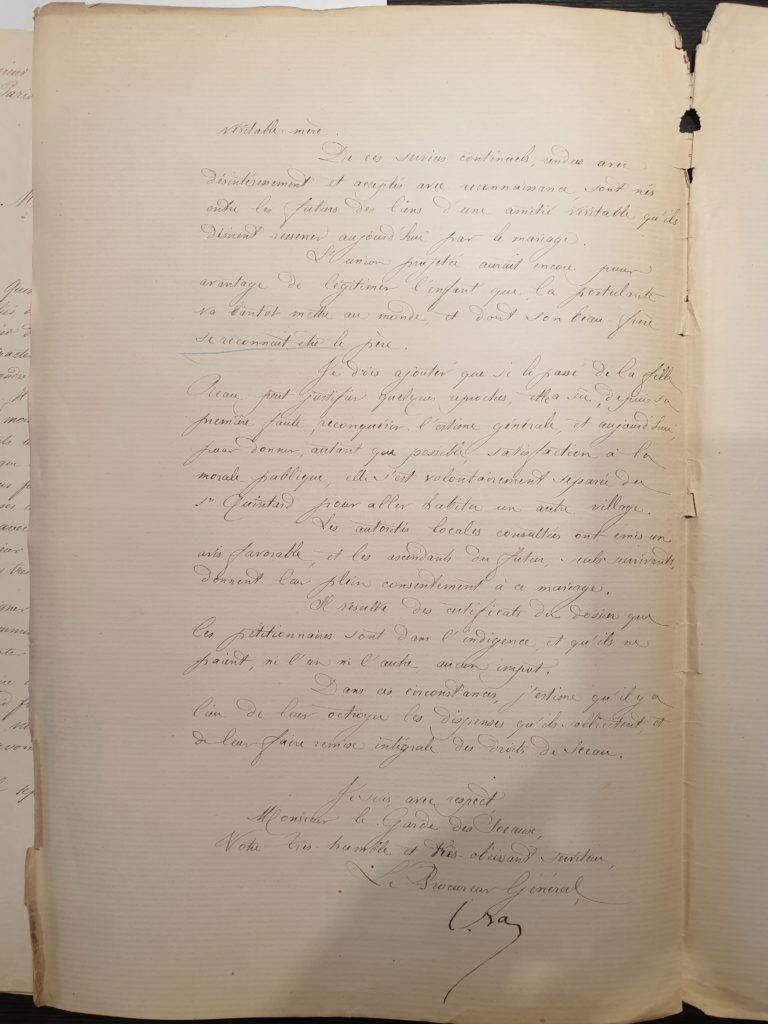 véritable mère.
De ces services continuels, rendus avec
désintéressement et acceptés avec reconnaissance, sont nés
entre les futurs des liens d'une amitié véritable qu'ils
désirent resserrer aujourd'hui par le mariage.
L'union projetée aurait encore pour
avantage de légitimer l'enfant que la postulante
va bientôt mettre au monde, et dont son beau-frère
se reconnait être le père.
Je dois ajouter que si le passé de la fille
peut justifier quelques reproches, elle a su, depuis sa
première faute, reconquérir l'estime générale, et aujourd'hui,
pour donner, autant que possible, satisfaction à la
morale publique, elle s'est volontairement séparée du
sr Quintard pour aller habiter un autre village.
Les autorités locales consultées ont émis un
avis favorable, et les ascendants du futur, seuls survivants,
donnent leur plein consentement à ce mariage.
Il résulte des certificats du dossier que
les pétitionnaires sont dans l'indigence, et qu'ils ne
paient, ni l'un ni l'autre, aucun impôt.
Dans ces circonstances, j'estime qu'il y a
lieu de leur octroyer les dispenses qu'ils sollicitent et
de leur faire remise intégrale des droits de Sceau.
Je suis avec respect,
Monsieur le Garde des Sceaux,
Votre très humble et très obéissant serviteur,
Le Procureur Général,